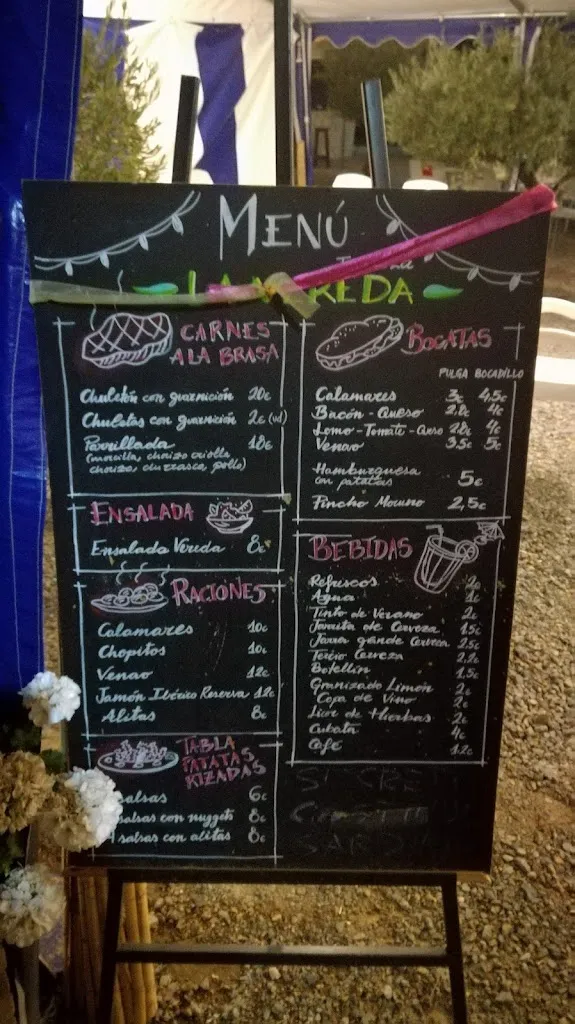 MENÚ
LA VEREDA
CARNES
A LA BRASA
Chuletón con guarnición 20€
Chuletas con guarnición 2€ (ud)
Parrillada 18€
(morcilla, chorizo criollo
chorizo, churrasco, pollo)
ENSALADA
Ensalada Vereda 8€
RACIONES
Calamares 10€
Chopitos 10€
Venao 12€
Jamón Ibérico Reserva 12€
Alitas 8€
TABLA
PATATAS
RIZADAS
salsas 6€
salsas con nuggets 8€
salsas con alitas 8€
BOCATAS
PULGA BOCADILLO
Calamares 3€ 4,5€
Bacón - Queso 2,8€ 4€
Lomo - Tomate - Queso 2,8€ 4€
Venao 3,5€ 5€
Hamburguesa
con patatas 5€
Pincho Moruno 2,5€
BEBIDAS
Refrescos 2€
Agua 1€
Tinto de Verano 2€
Jarrita de Cerveza 1,5€
Jarra grande Cerveza 2,5€
Tercio Cerveza 2,2€
Botellín 1,5€
Granizado Limón 2€
Copa de Vino 2€
Licor de Hierbas 2€
Cubata 4€
Café 1,2€